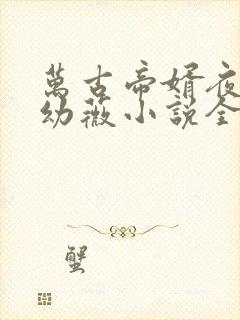 萬古帝婿夜
幼薇小說全
蟹